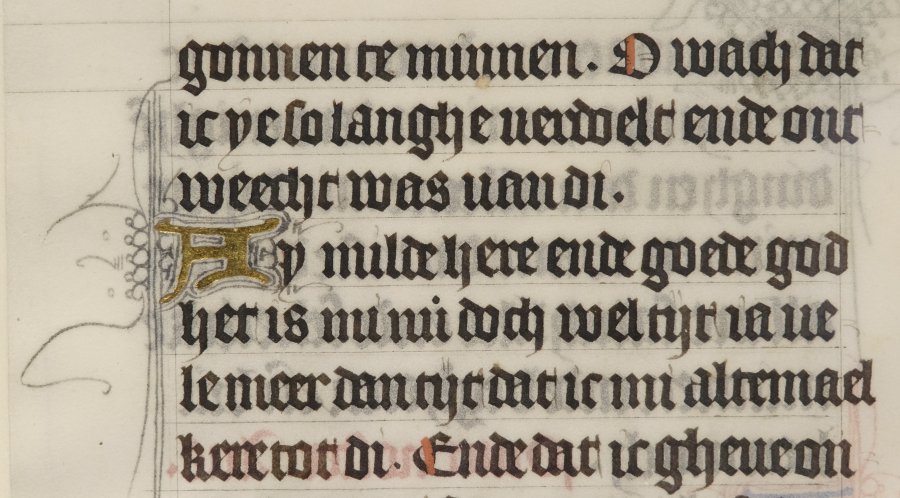 gonnen te minnen. O wach dat
ic ye so langhe uerdoelt ende ont
weecht was uan di.
Ay milde here ende goede god
het is nu mi doch wel tijt ia ue
le meer dan tijt dat ic mi altemael
kere tot di. Ende dat ic gheue on